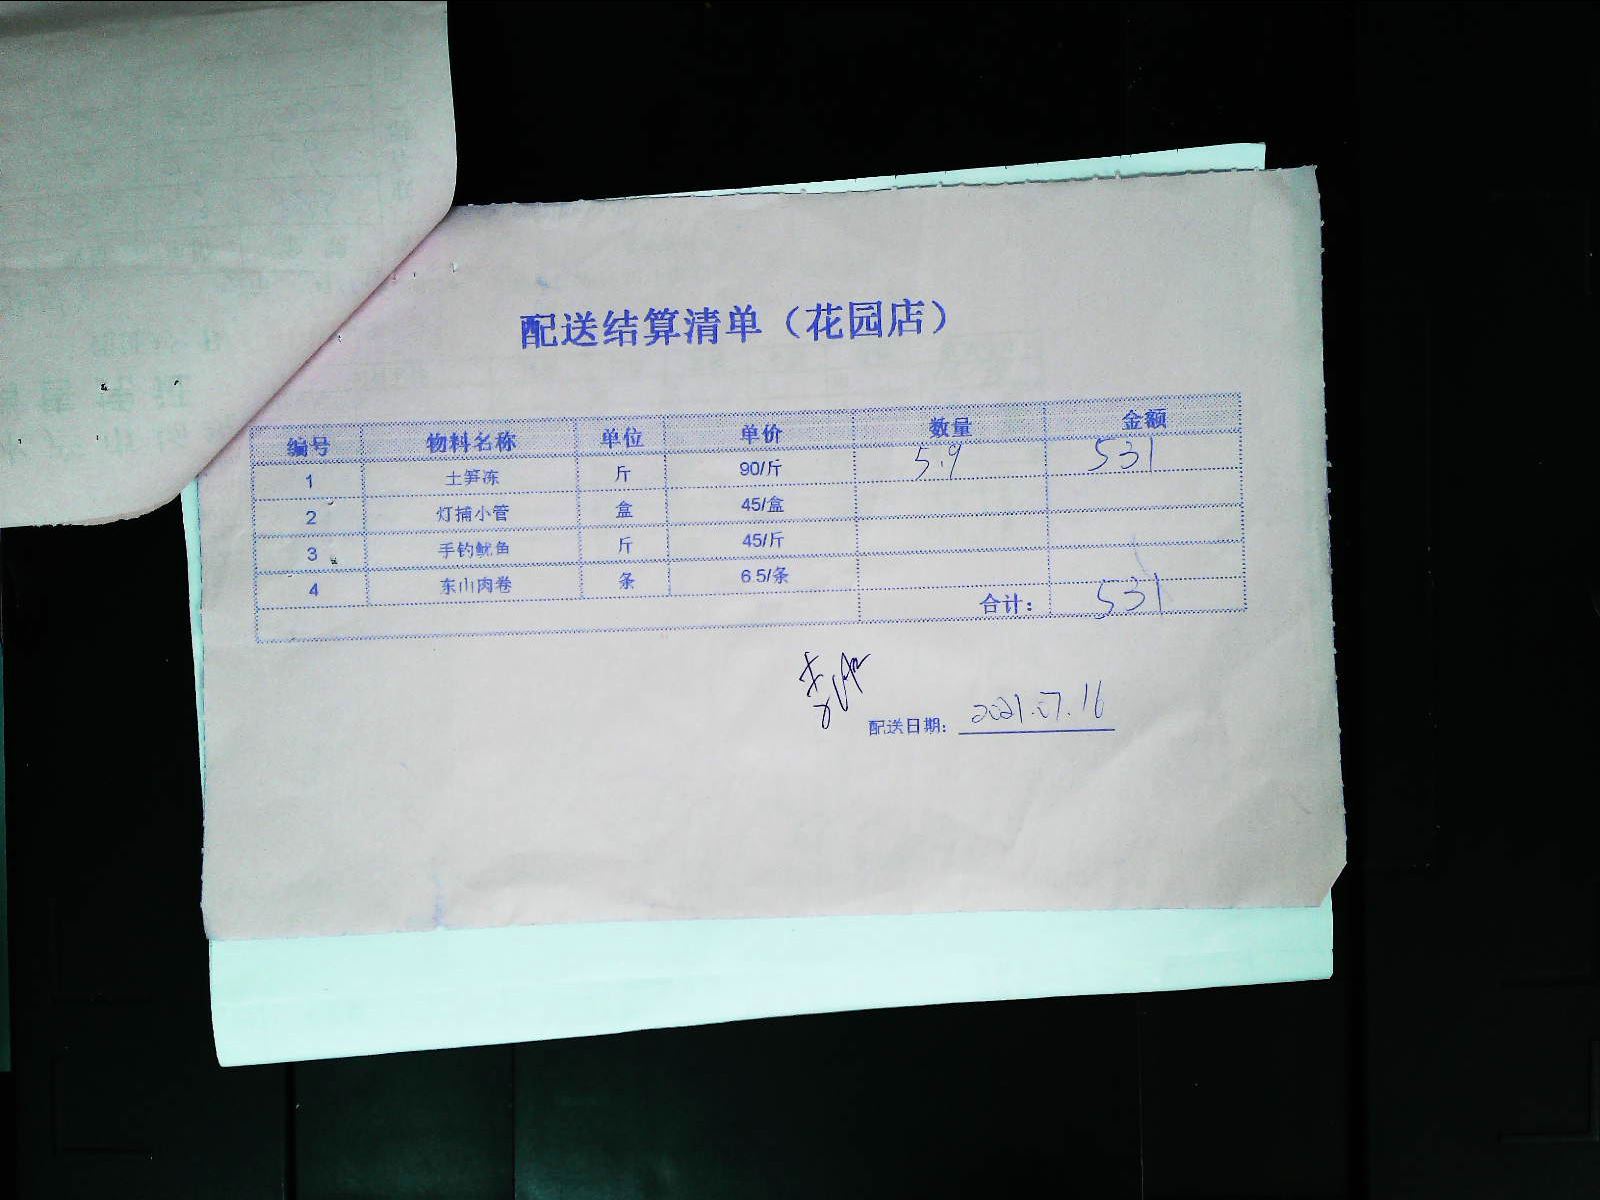 配送结算清单（花园店）
编号 物料名称 单位 单价 数量 金额
1 土笋冻 斤 90/斤 5.9 531
2 灯捕小管 盒 45/盒
3 手钓鱿鱼 斤 45/斤
4 东山肉卷 条 6.5/条
合计： 531
配送日期： 2021.07.16